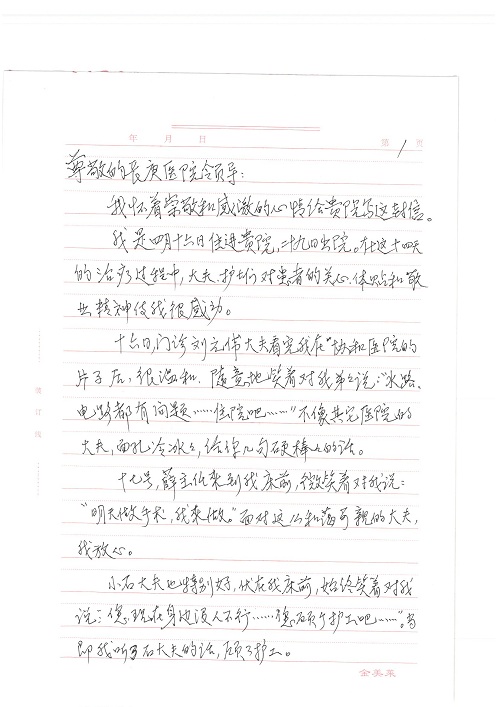 年 月 日 第 1 页
尊敬的长庚医院领导：
我怀着崇敬和感激的心情给贵院写这封信。
我是四月十六日住进贵院，二十九日出院。在这十四天
的治疗过程中，大夫、护士们对患者的关心、体贴和敬
业精神使我很感动。
十六日，门诊刘元伟大夫看完我在"协和医院的
片子后，很温和、随意地笑着对我弟弟说："水路、
电路都有问题……住院吧……"不像其它医院的
大夫，面孔冷冰冰，给你几句硬棒棒的话。
十七号，薛主任来到我床前，微笑着对我说：
"明天做手术，我来做。"面对这么和蔼可亲的大夫，
我放心。
小石大夫也特别好，伏在我床前，始终笑着对我
说：您现在身边没人不行……您顾个护工吧……"。当
即我听了石大夫的话，顾了护工。
装订线
金美来